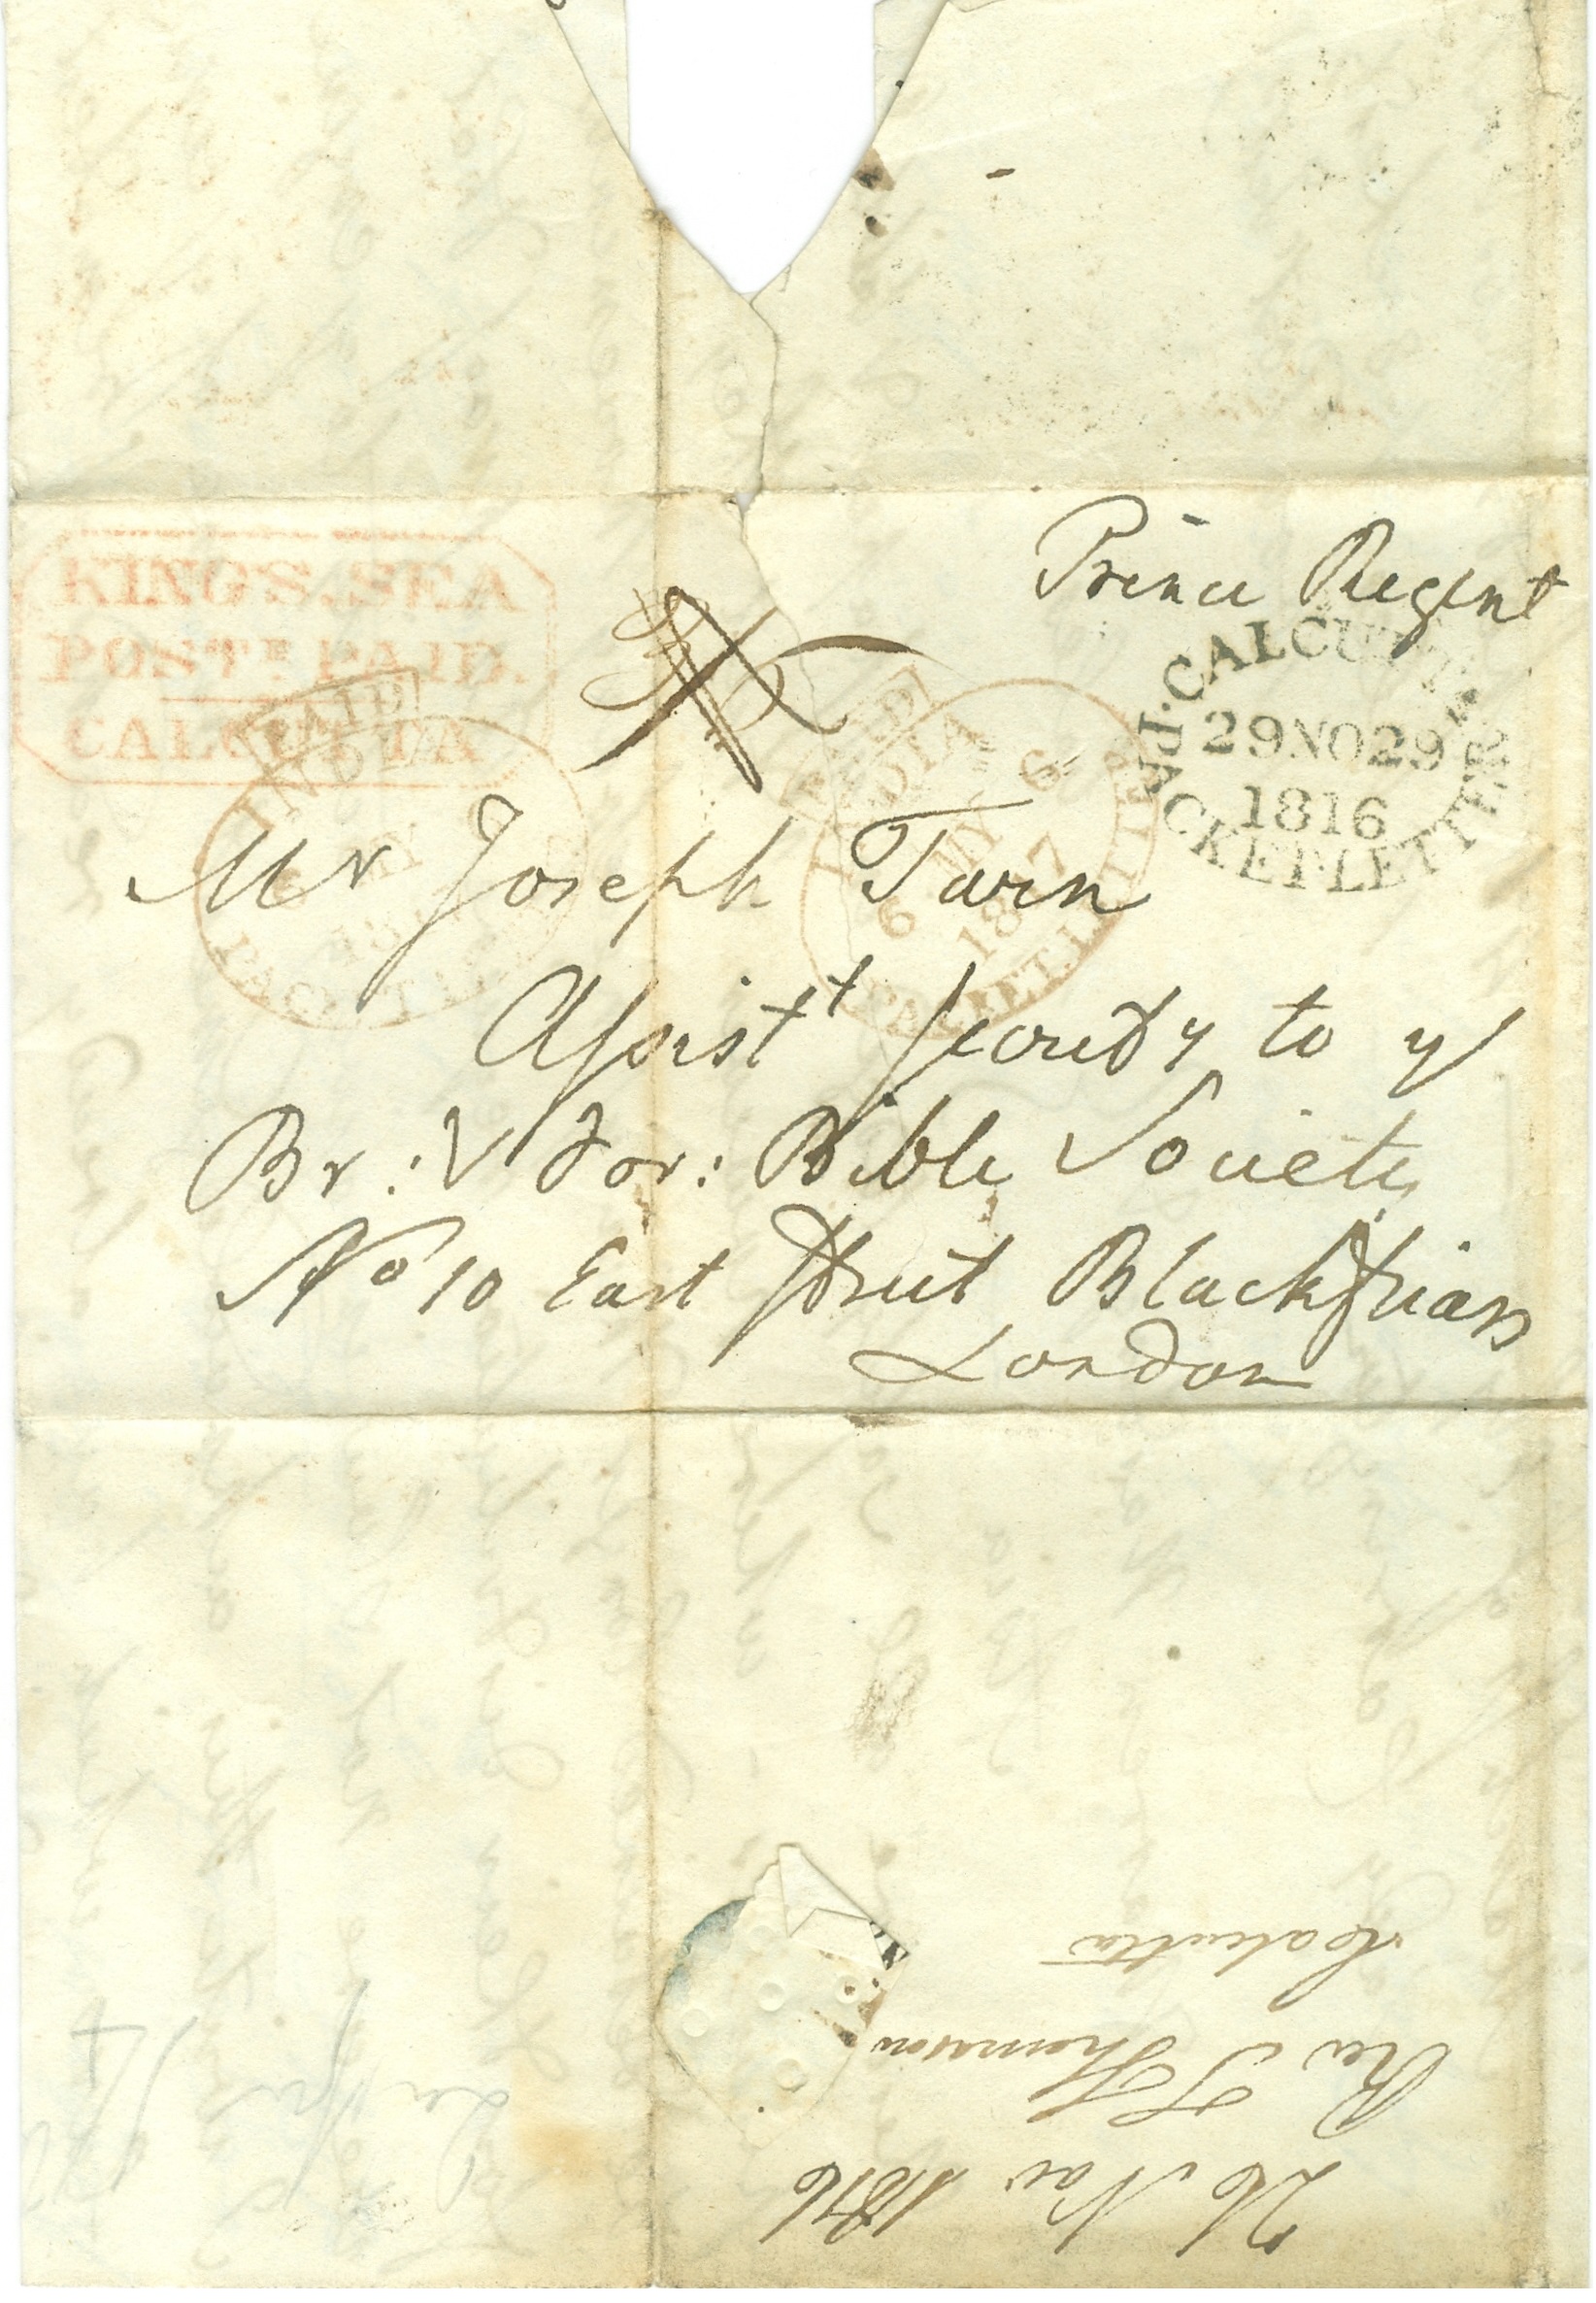 Prince Regent
KING'S.SEA
POSTE PAID.
CALCUTTA
CALCUTTA
29NO29
1816
PACKET LETTER
PAID
INDIA
PACKET
PAID
INDIA
6 MY 6
1817
PACKET LETTER
Mr Joseph Tarn
Assistt Secretry to ye
Br: & For: Bible Society
No 10 East Street Blackfriars
London
26 Nov 1816
Rev T Thomason
Calcutta